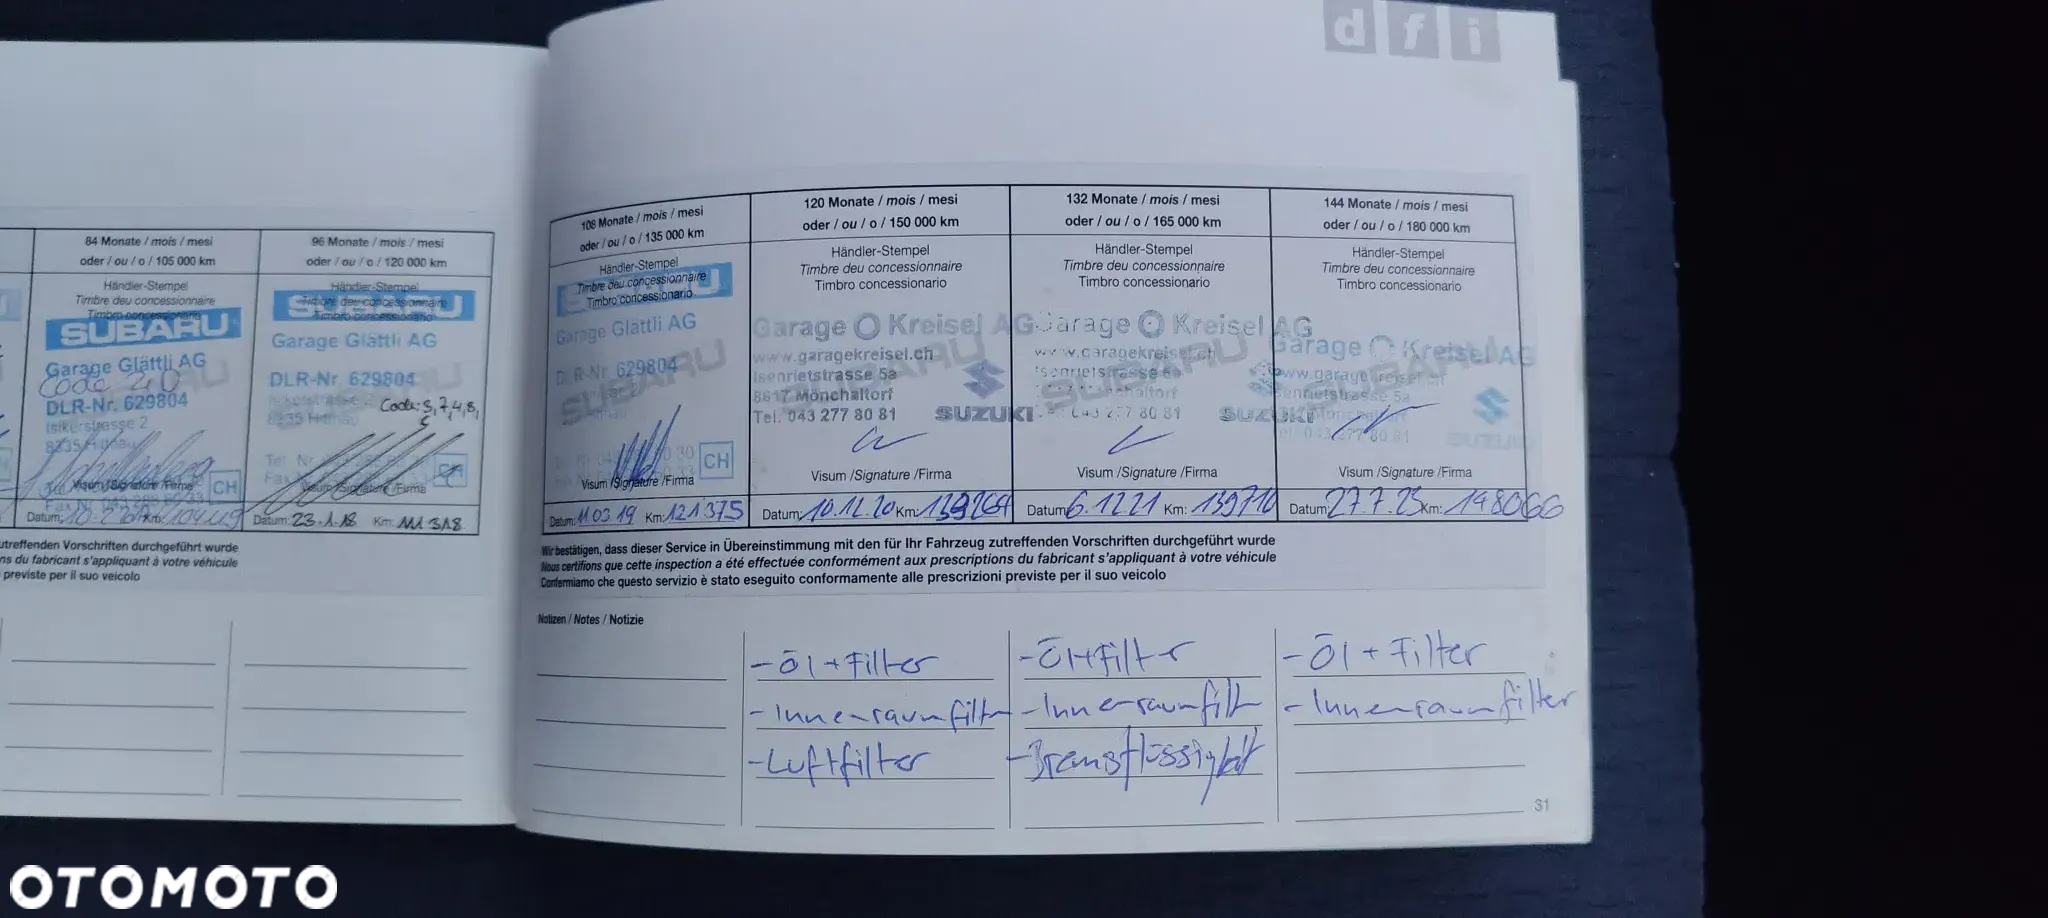 dfi
84 Monate / mois / mesi
oder / ou / o / 105 000 km
Händler-Stempel
Timbre deu concessionnaire
Timbro concessionario
SUBARU
Garage Glättli AG
Code 40
DLR-Nr. 629804
Isikerstrasse 2
Visum /Signature /Firma
CH
Datum:
Km:
96 Monate / mois / mesi
oder / ou / o / 120 000 km
Händler-Stempel
Timbre deu concessionnaire
Timbro concessionario
Garage Glättli AG
DLR-Nr. 629804
Visum /Signature /Firma
CH
Datum: 23.1.18 Km: 111 318
utreffenden Vorschriften durchgeführt wurde
ns du fabricant s'appliquant à votre véhicule
previste per il suo veicolo
108 Monate / mois / mesi
oder / ou / o / 135 000 km
Händler-Stempel
Timbre deu concessionnaire
Timbro concessionario
Garage Glättli AG
DLR-Nr. 629804
SUBARU
CH
Visum /Signature /Firma
Datum: 11.03.19 Km: 121'375
120 Monate / mois / mesi
oder / ou / o / 150 000 km
Händler-Stempel
Timbre deu concessionnaire
Timbro concessionario
Garage Kreisel AG
www.garagekreisel.ch
Isenrietstrasse 5a
8617 Mönchaltorf
Tel. 043 277 80 81
SUZUKI
Visum /Signature /Firma
Datum: 10.12.20 Km:
132 Monate / mois / mesi
oder / ou / o / 165 000 km
Händler-Stempel
Timbre deu concessionnaire
Timbro concessionario
Garage Kreisel AG
www.garagekreisel.ch
Isenrietstrasse 5a
Mönchaltorf
043 277 80 81
SUZUKI
Visum /Signature /Firma
Datum: 6.12.21 Km: 139710
144 Monate / mois / mesi
oder / ou / o / 180 000 km
Händler-Stempel
Timbre deu concessionnaire
Timbro concessionario
Garage Kreisel AG
www.garagekreisel.ch
Isenrietstrasse 5a
Mönchaltorf
043 277 80 81
SUZUKI
Visum /Signature /Firma
Datum: 27.7.23 Km: 148066
Wir bestätigen, dass dieser Service in Übereinstimmung mit den für Ihr Fahrzeug zutreffenden Vorschriften durchgeführt wurde
Nous certifions que cette inspection a été effectuée conformément aux prescriptions du fabricant s'appliquant à votre véhicule
Confermiamo che questo servizio è stato eseguito conformamente alle prescrizioni previste per il suo veicolo
Notizen / Notes / Notizie
- Öl + Filter
- Innenraumfilter
- Luftfilter
- Öl + Filter
- Innenraumfilt
- Bremsflüssigkeit
- Öl + Filter
- Innenraumfilter
31
OTOMOTO